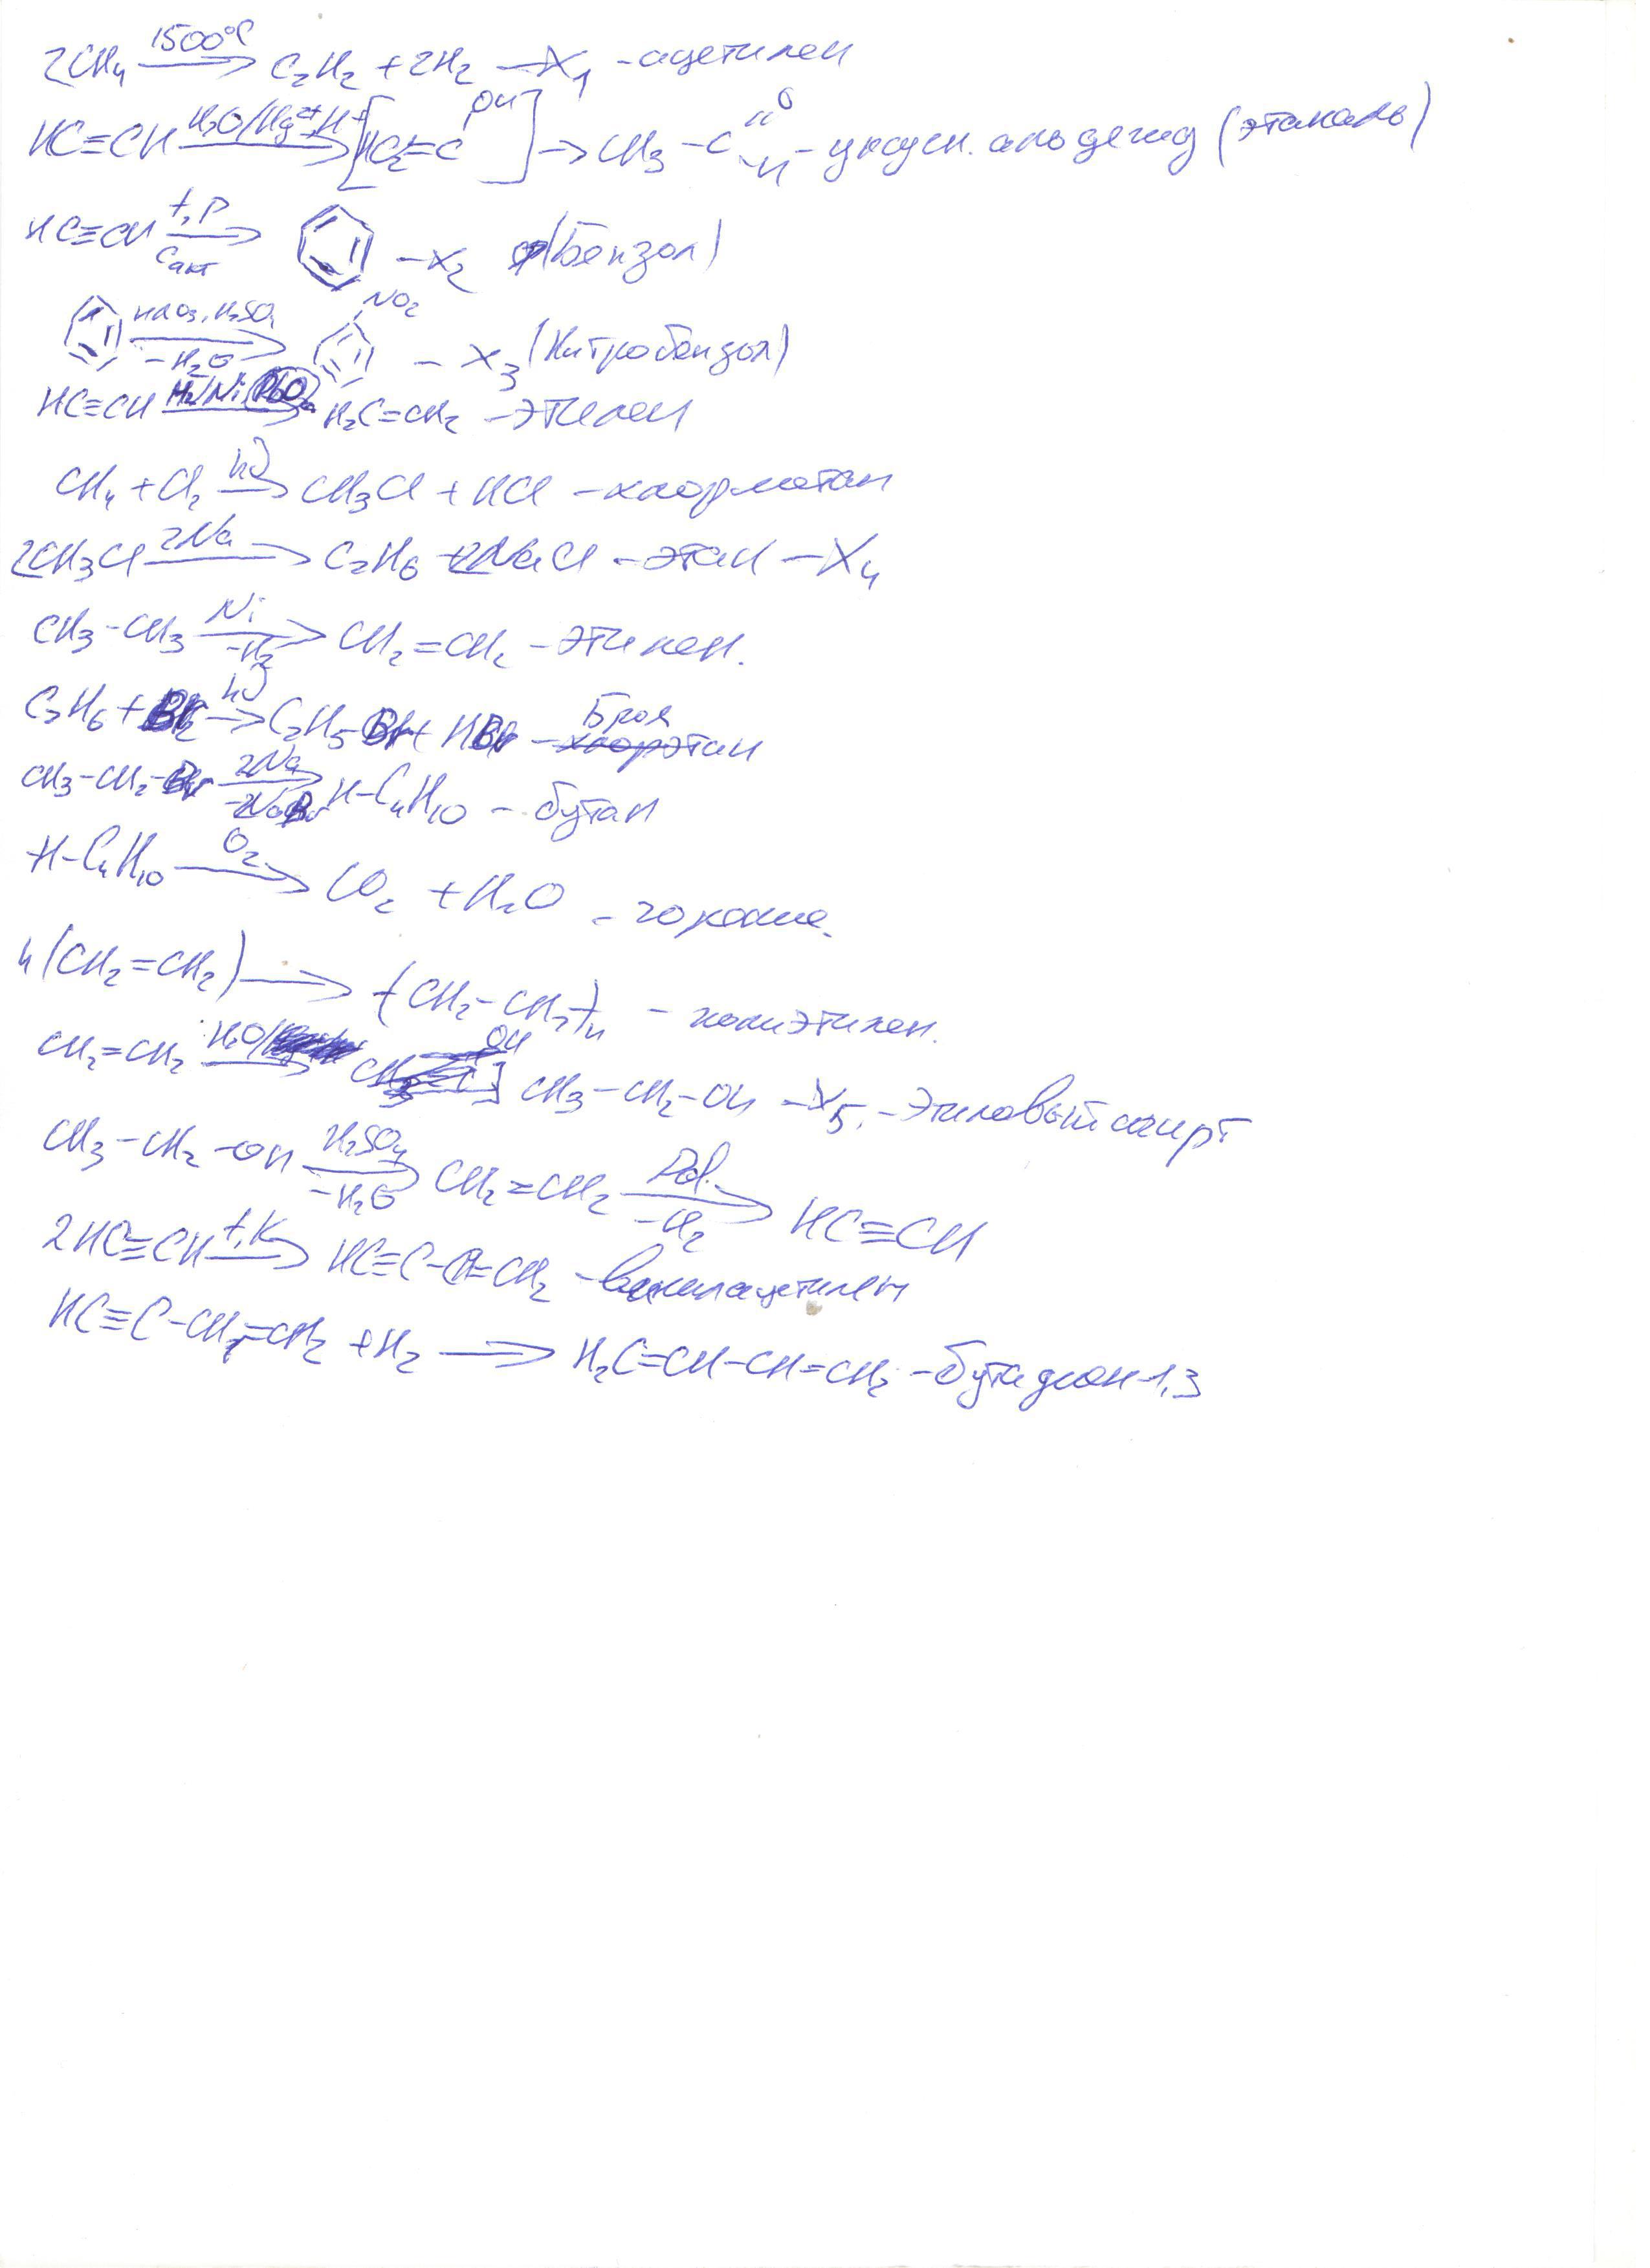 2CH₄ 1500°C → C₂H₂ + 2H₂ – X₁ - ацетилен
HC≡CH H₂O/Hg²⁺, H⁺ → [HC₂=C OH] → CH₃ – C =O -H - уксусн. альдегид (этаналь)
HC≡CH t, P Cакт → – X₂ (Бензол)
HNO₃, H₂SO₄ -H₂O → NO₂ – X₃ (Нитробензол)
HC≡CH H₂/Ni → H₂C=CH₂ – этилен
CH₄ + Cl₂ hν → CH₃Cl + HCl – хлорметан
2CH₃Cl 2Na → C₂H₆ + 2NaCl – этан – X₄
CH₃-CH₃ Ni -H₂ → CH₂=CH₂ – этилен.
C₂H₆ + Br₂ hν → C₂H₅Br + HBr – Бромэтан
CH₃-CH₂-Br 2Na -2NaBr н-C₄H₁₀ – бутан
н-C₄H₁₀ O₂ → CO₂ + H₂O – горение.
n(CH₂=CH₂) → (CH₂-CH₂)n – полиэтилен.
CH₂=CH₂ H₂O → CH₃-CH₂-OH – X₅. – Этиловый спирт
CH₃-CH₂-OH H₂SO₄ -H₂O → CH₂=CH₂ Pd. -H₂ → HC≡CH
2HC≡CH t, K → HC≡C-CH=CH₂ – винилацетилен
HC≡C-CH=CH₂ + H₂ → H₂C=CH-CH=CH₂ – бутадиен-1,3